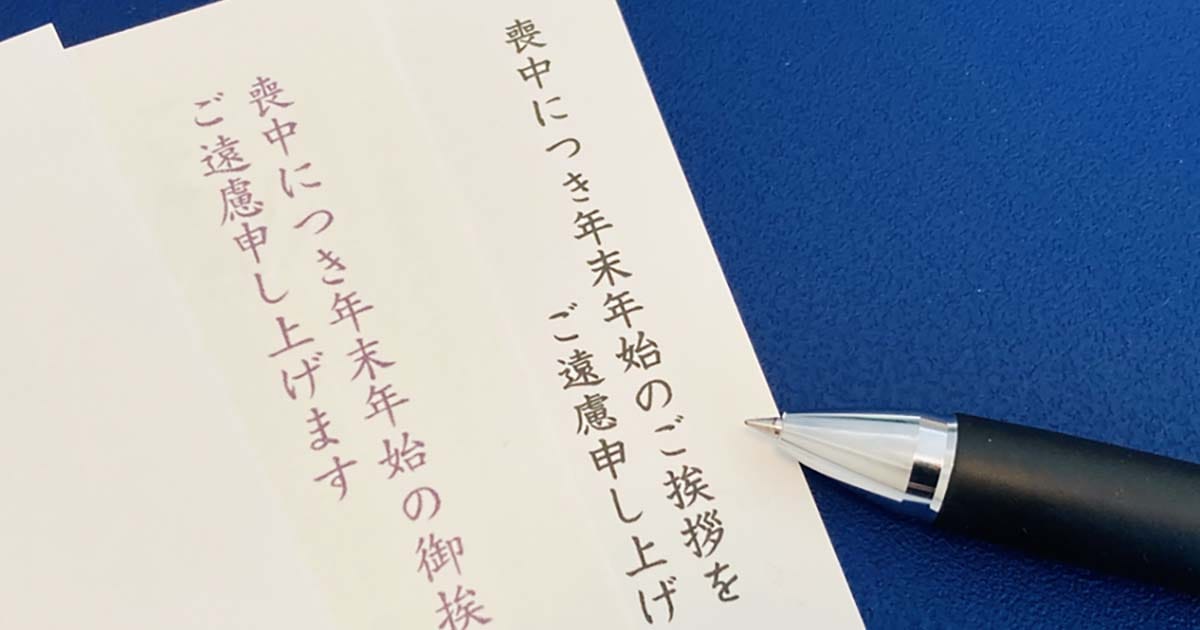 喪中につき年末年始のご挨拶を
ご遠慮申し上げ
喪中につき年末年始の御挨
ご遠慮申し上げます